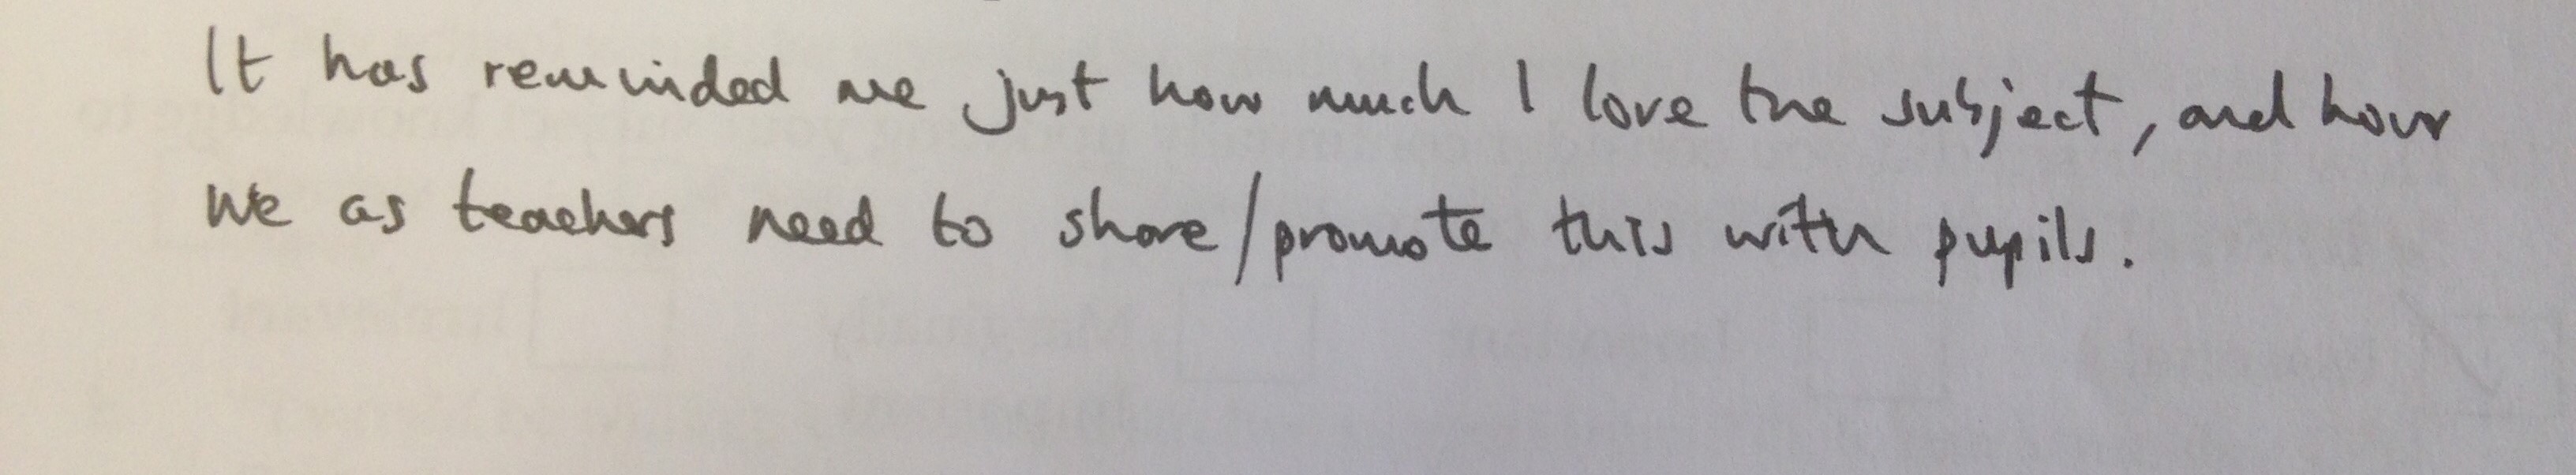 It has reminded me just how much I love the subject, and how
we as teachers need to share/promote this with pupils.